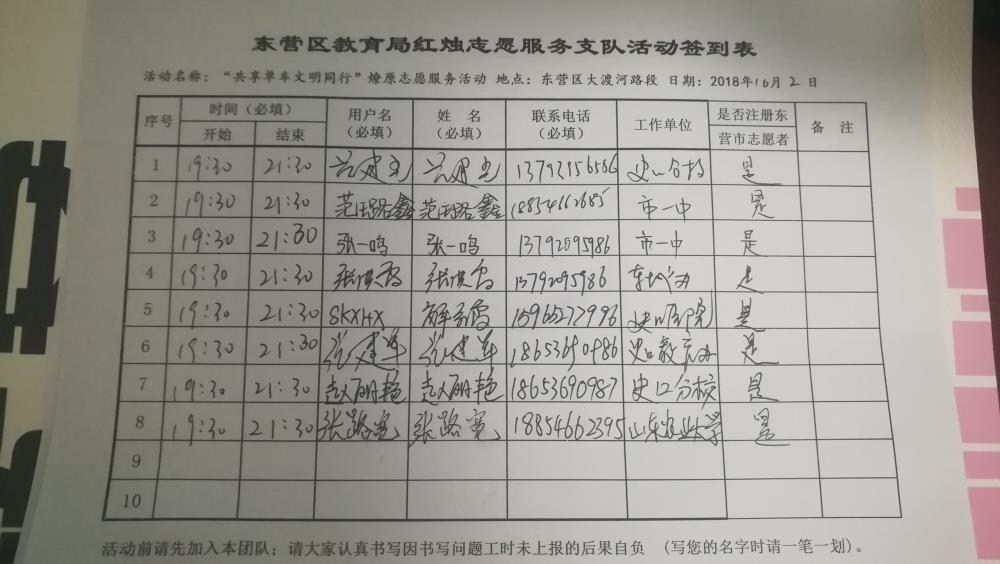 东营区教育局红烛志愿服务支队活动签到表
活动名称：“共享单车文明同行”燎原志愿服务活动 地点：东营区大渡河路段 日期：2018年10月2日
序号 时间（必填） 用户名（必填） 姓 名（必填） 联系电话（必填） 工作单位 是否注册东营市志愿者 备 注
开始 结束
1 19:30 21:30 是
2 19:30 21:30 范璐鑫 范璐鑫 18854662685 市一中 是
3 19:30 21:30 张一鸣 张一鸣 13792095986 市一中 是
4 19:30 21:30 13792095986 是
5 19:30 21:30 SKXHX 是
6 19:30 21:30 张建军 张建军 18653690986 是
7 19:30 21:30 赵丽艳 赵丽艳 18653690987 史口分校 是
8 19:30 21:30 张路宽 张路宽 18854662395 山东农业大学 是
9
10
活动前请先加入本团队；请大家认真书写因书写问题工时未上报的后果自负 （写您的名字时请一笔一划）。